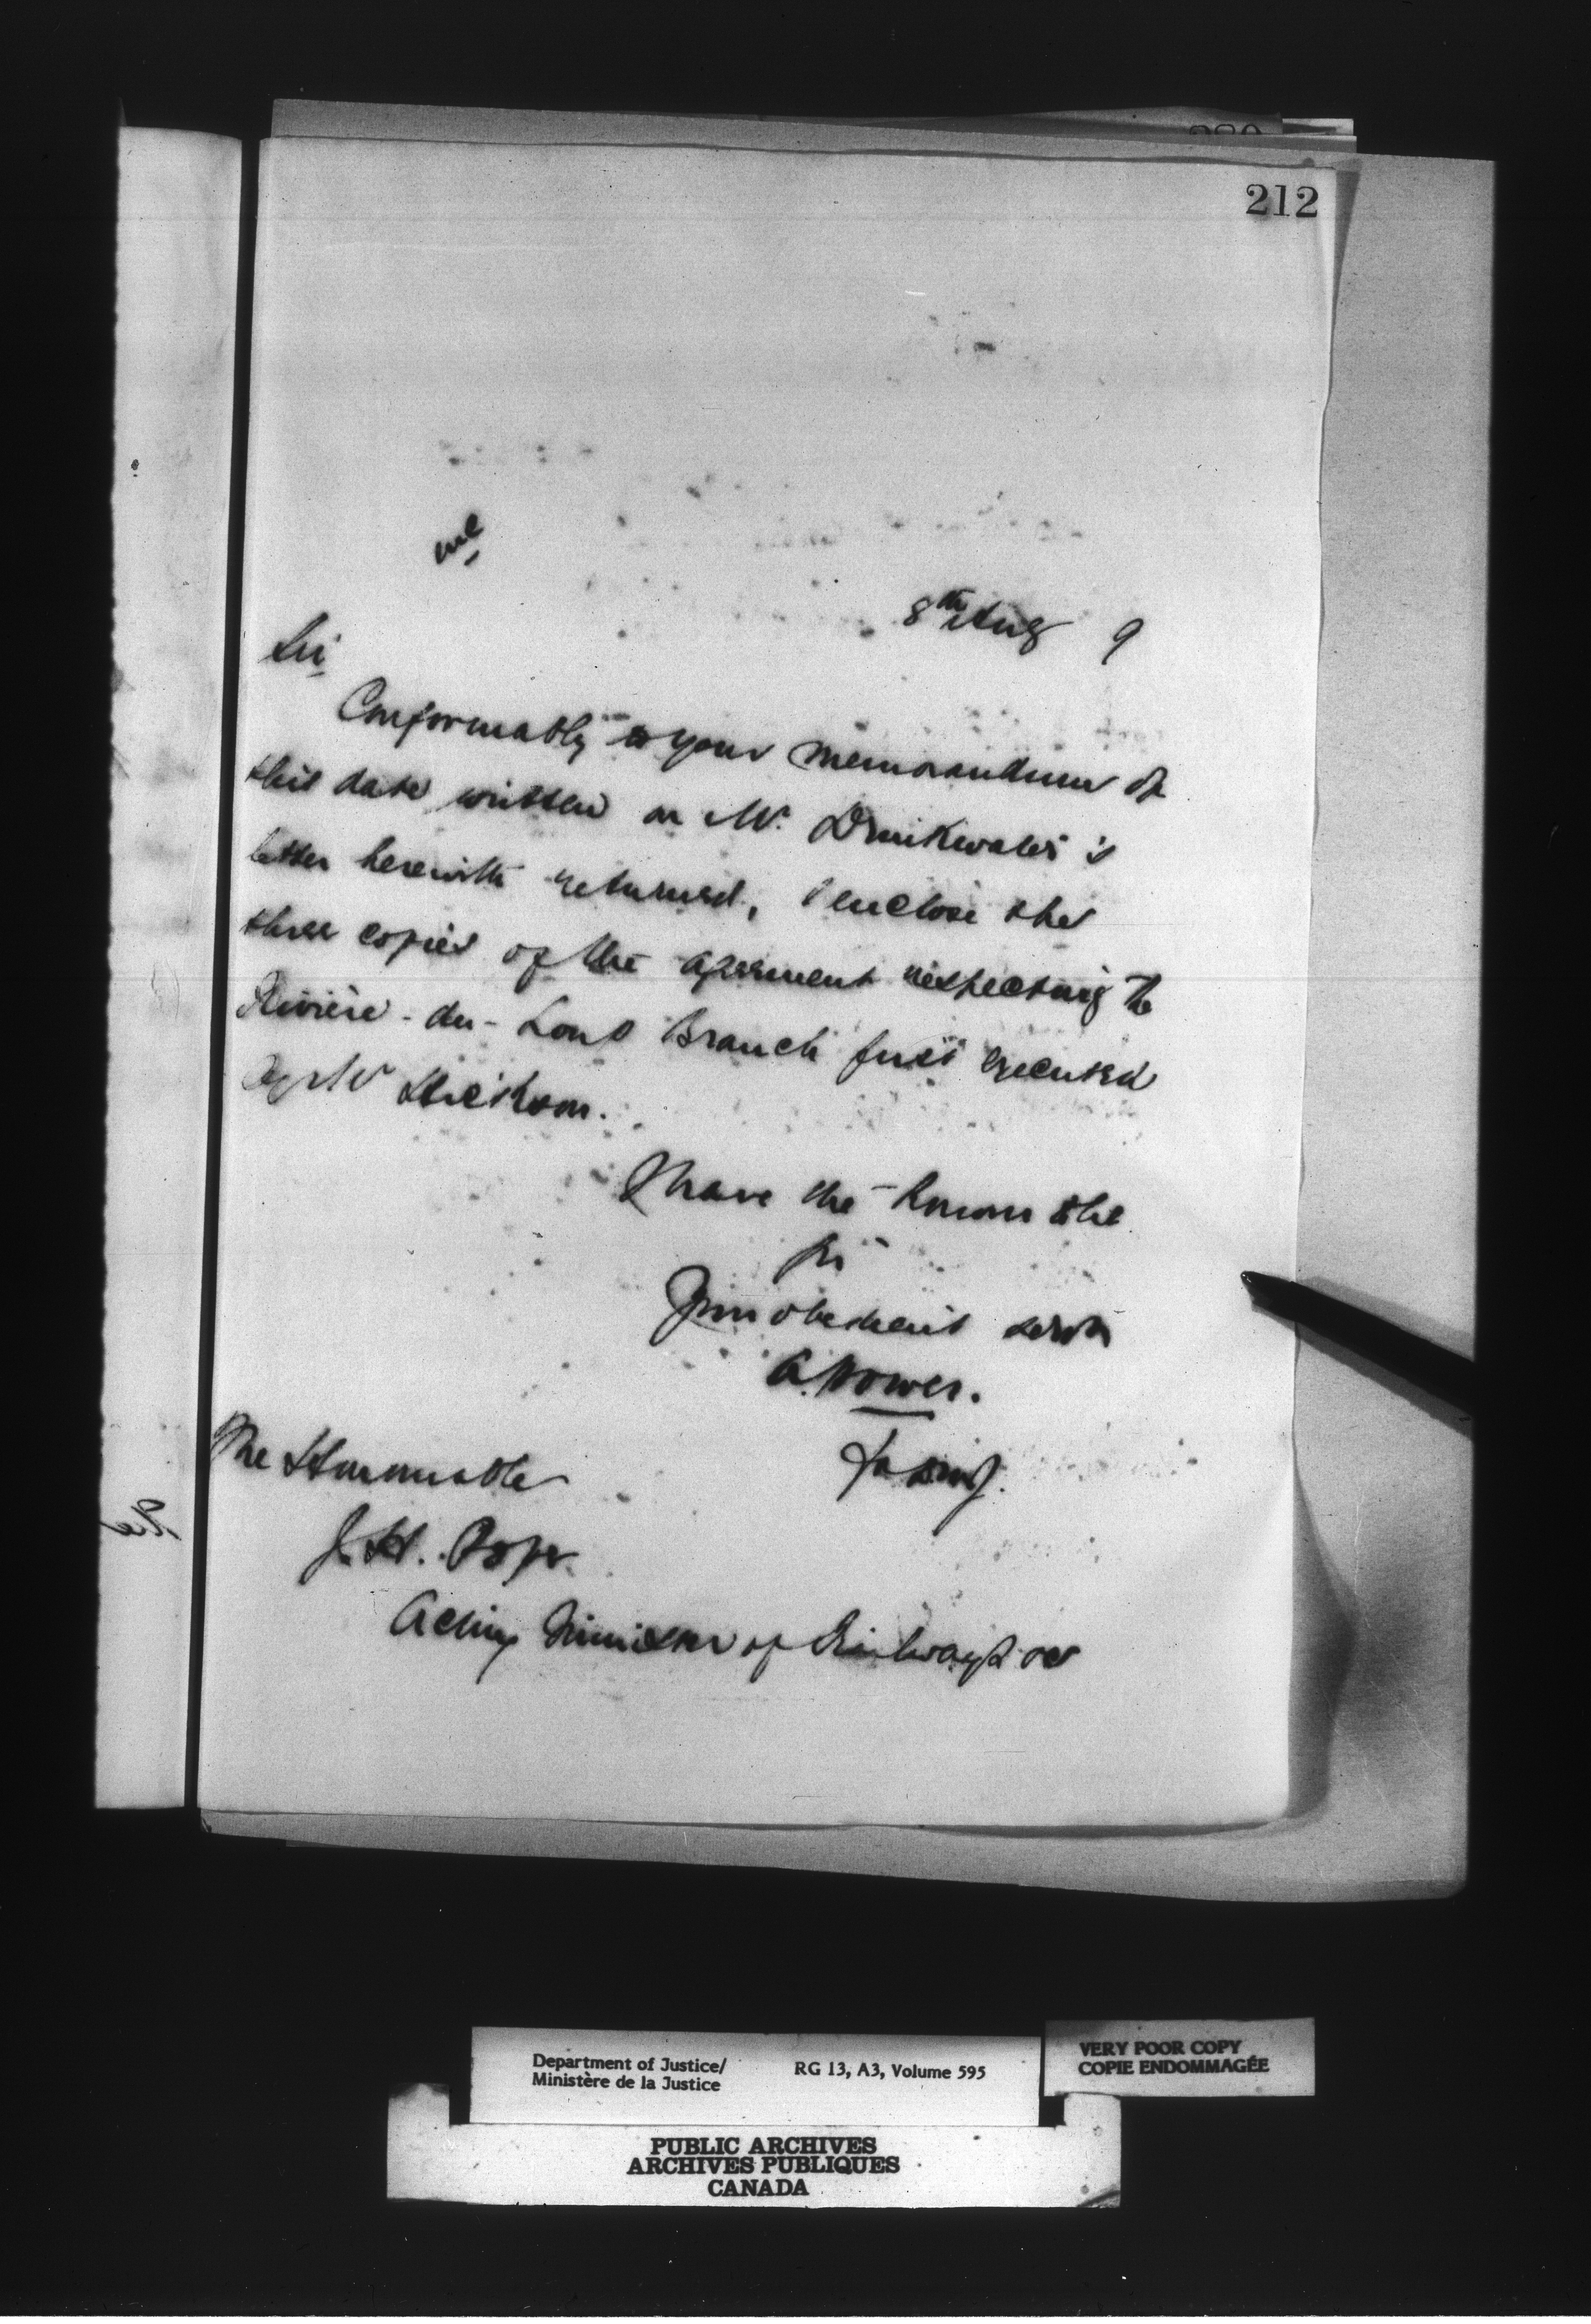 212
8th Aug 9
Sir,
Conformably to your memorandum of
this date written on Mr. Drinkwater's
letter herewith returned, I enclose the
three copies of the agreement respecting the
Rivière-du-Loup Branch just executed
by Mr Hickson.
I have the honour to be
Sir
Your obedient servt
A. Power.
for D.M.J.
The Honourable
J. H. Pope
Acting Minister of Railways &c
Department of Justice/
Ministère de la Justice
RG 13, A3, Volume 595
VERY POOR COPY
COPIE ENDOMMAGÉE
PUBLIC ARCHIVES
ARCHIVES PUBLIQUES
CANADA